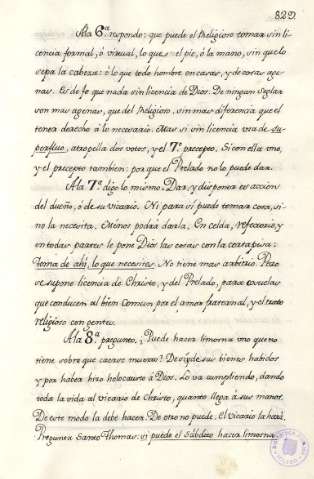 822.
Ála 6ª respondo: que puede el Religioso tomar sin li-
cencia formal, ó virtual, lo que el pie, ó la mano, sin que lo
sepa la cabeza: ó lo que todo hombre en casas, y de cosas age-
nas. Es de fe que nada sin licencia de Dios. De ningun seglar
son mas agenas, que del Religioso, sin mas diferencia que el
tener derecho á lo necesario. Mas si sin licencia usa de su-
perfluo, atropella dos votos, y el 7º precepto. Si con ella uno,
y el precepto tambien: por que el Prelado no lo puede dar.
Ala 7ª digo lo mismo. Dar, y disponer es accion
del dueño, ó de su vicario. Ni para sí puede tomar cosa, si-
no la necesita. Menos podrá darla. En celda, refectorio, y
en todas partes le pone Dios las cosas con la cortapisa:
toma de ahí, lo que necesites. No tiene mas arbitrio. Pero
se supone licencia de Christo, y del Prelado, para
que conducen al bien comun por el amor fraternal, y el trato
religioso con gentes.
Ála 8ª pregunto. ¿Puede hacer limosna uno que no
tiene sobre que caerse muerto? De sus bienes habidos
y por haber hizo holocausto á Dios. Lo va cumpliendo, dando
toda la vida al vicario de Christo, quanto llega á sus manos.
De este modo la debe hacer. De otro no puede. El vicario la hará.
Pregunta Santo Thomas: si puede el súbdito hacer limosna